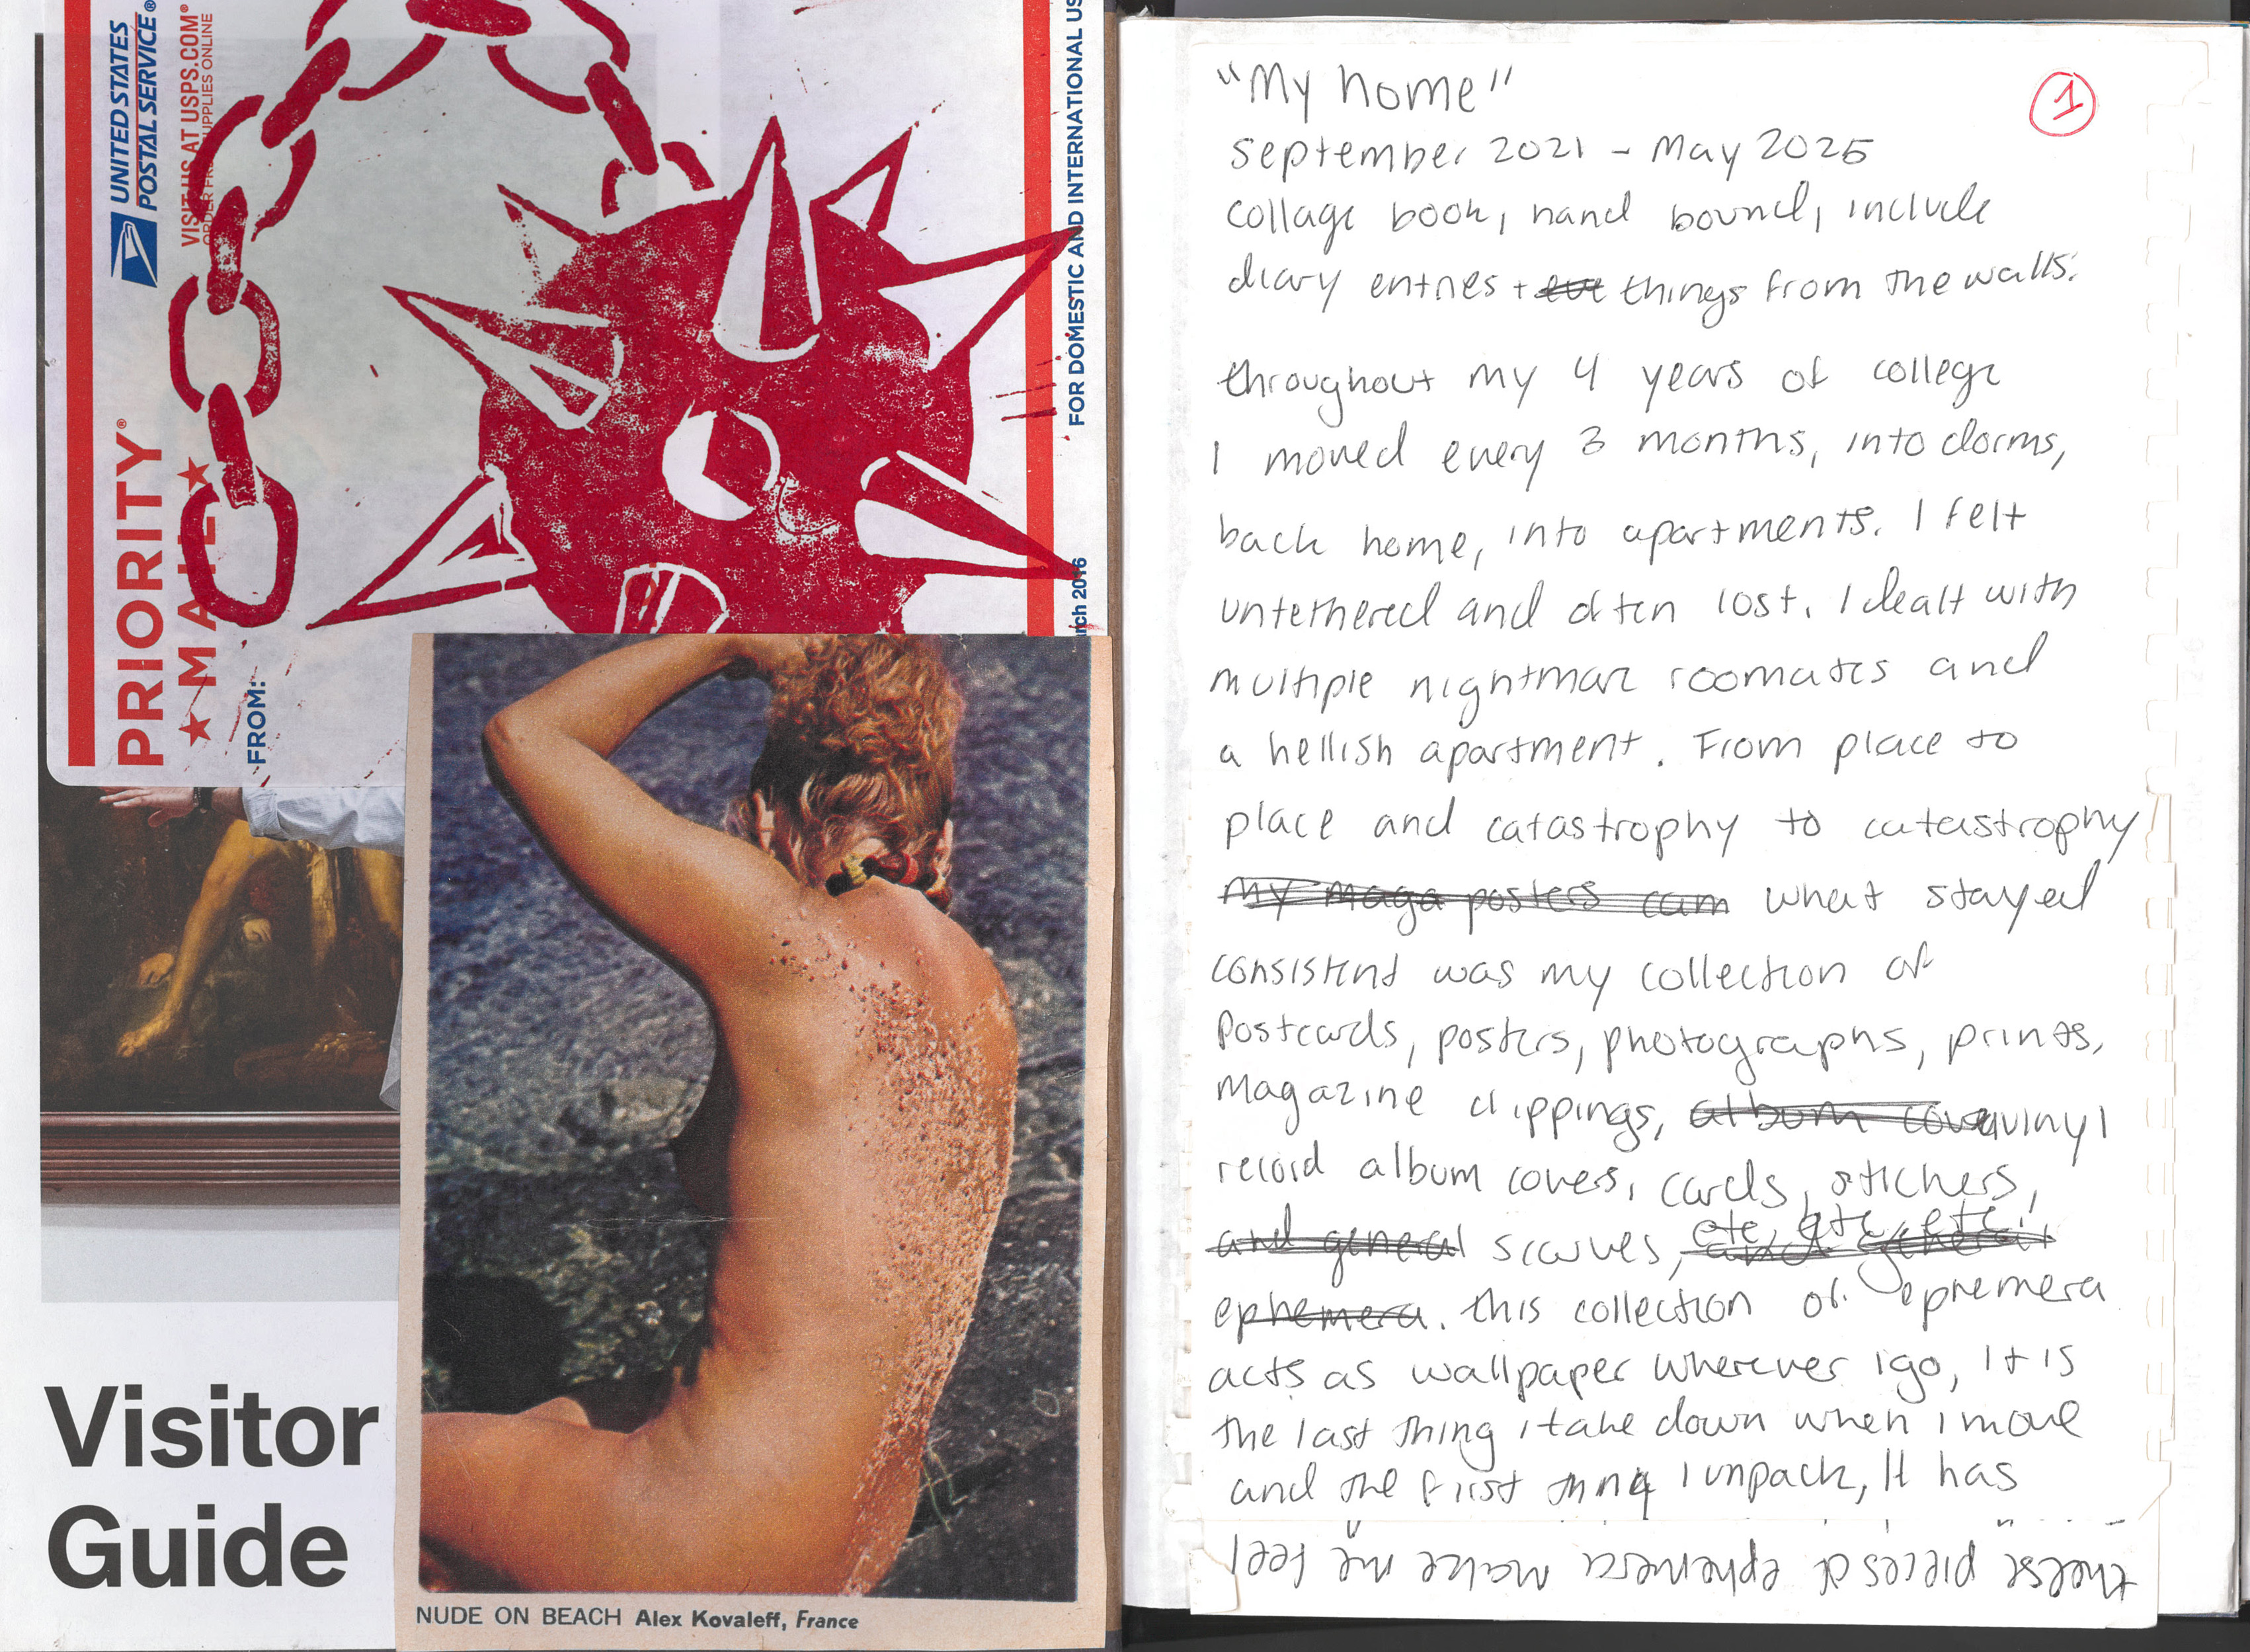 UNITED STATES
POSTAL SERVICE®
VISIT US AT USPS.COM®
ORDER FREE SUPPLIES ONLINE
PRIORITY®
★ MAIL ★
FROM:
FOR DOMESTIC AND INTERNATIONAL US
rch 2016
Visitor
Guide
NUDE ON BEACH Alex Kovaleff, France
"My home"
1
september 2021 - May 2025
collage book, hand bound, include
diary entries + things from the walls.
throughout my 4 years of college
I moved every 3 months, into dorms,
back home, into apartments. I felt
untethered and often lost. I dealt with
multiple nightmare roomates and
a hellish apartment. From place to
place and catastrophy to catastrophy
my maga posters cam what stayed
consistent was my collection of
Postcards, posters, photographs, prints,
Magazine clippings, album cove vinyl
record album covers, cards, stickers,
and general scarves, and general etc, etc, etc.
ephemera. this collection of ephemera
acts as wallpaper wherever i go, It is
the last thing i take down when i move
and the first thing I unpack, It has
these pieces of ephemera make me feel